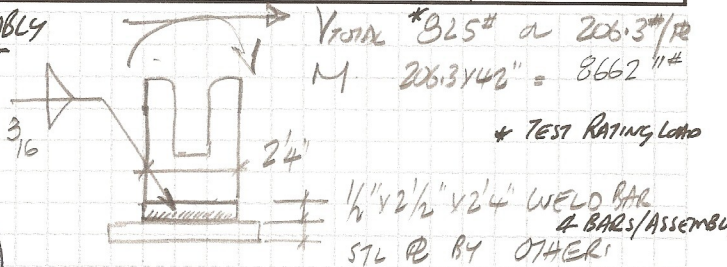 BLY
VTOTAL *825# or 206.3#/PL
M 206.3x42" = 8662"#
* TEST RATING LOAD
3/16
2'4"
1/2" x 2 1/2" x 2'4" WELD BAR
4 BARS/ASSEMBL
STL PL BY OTHER